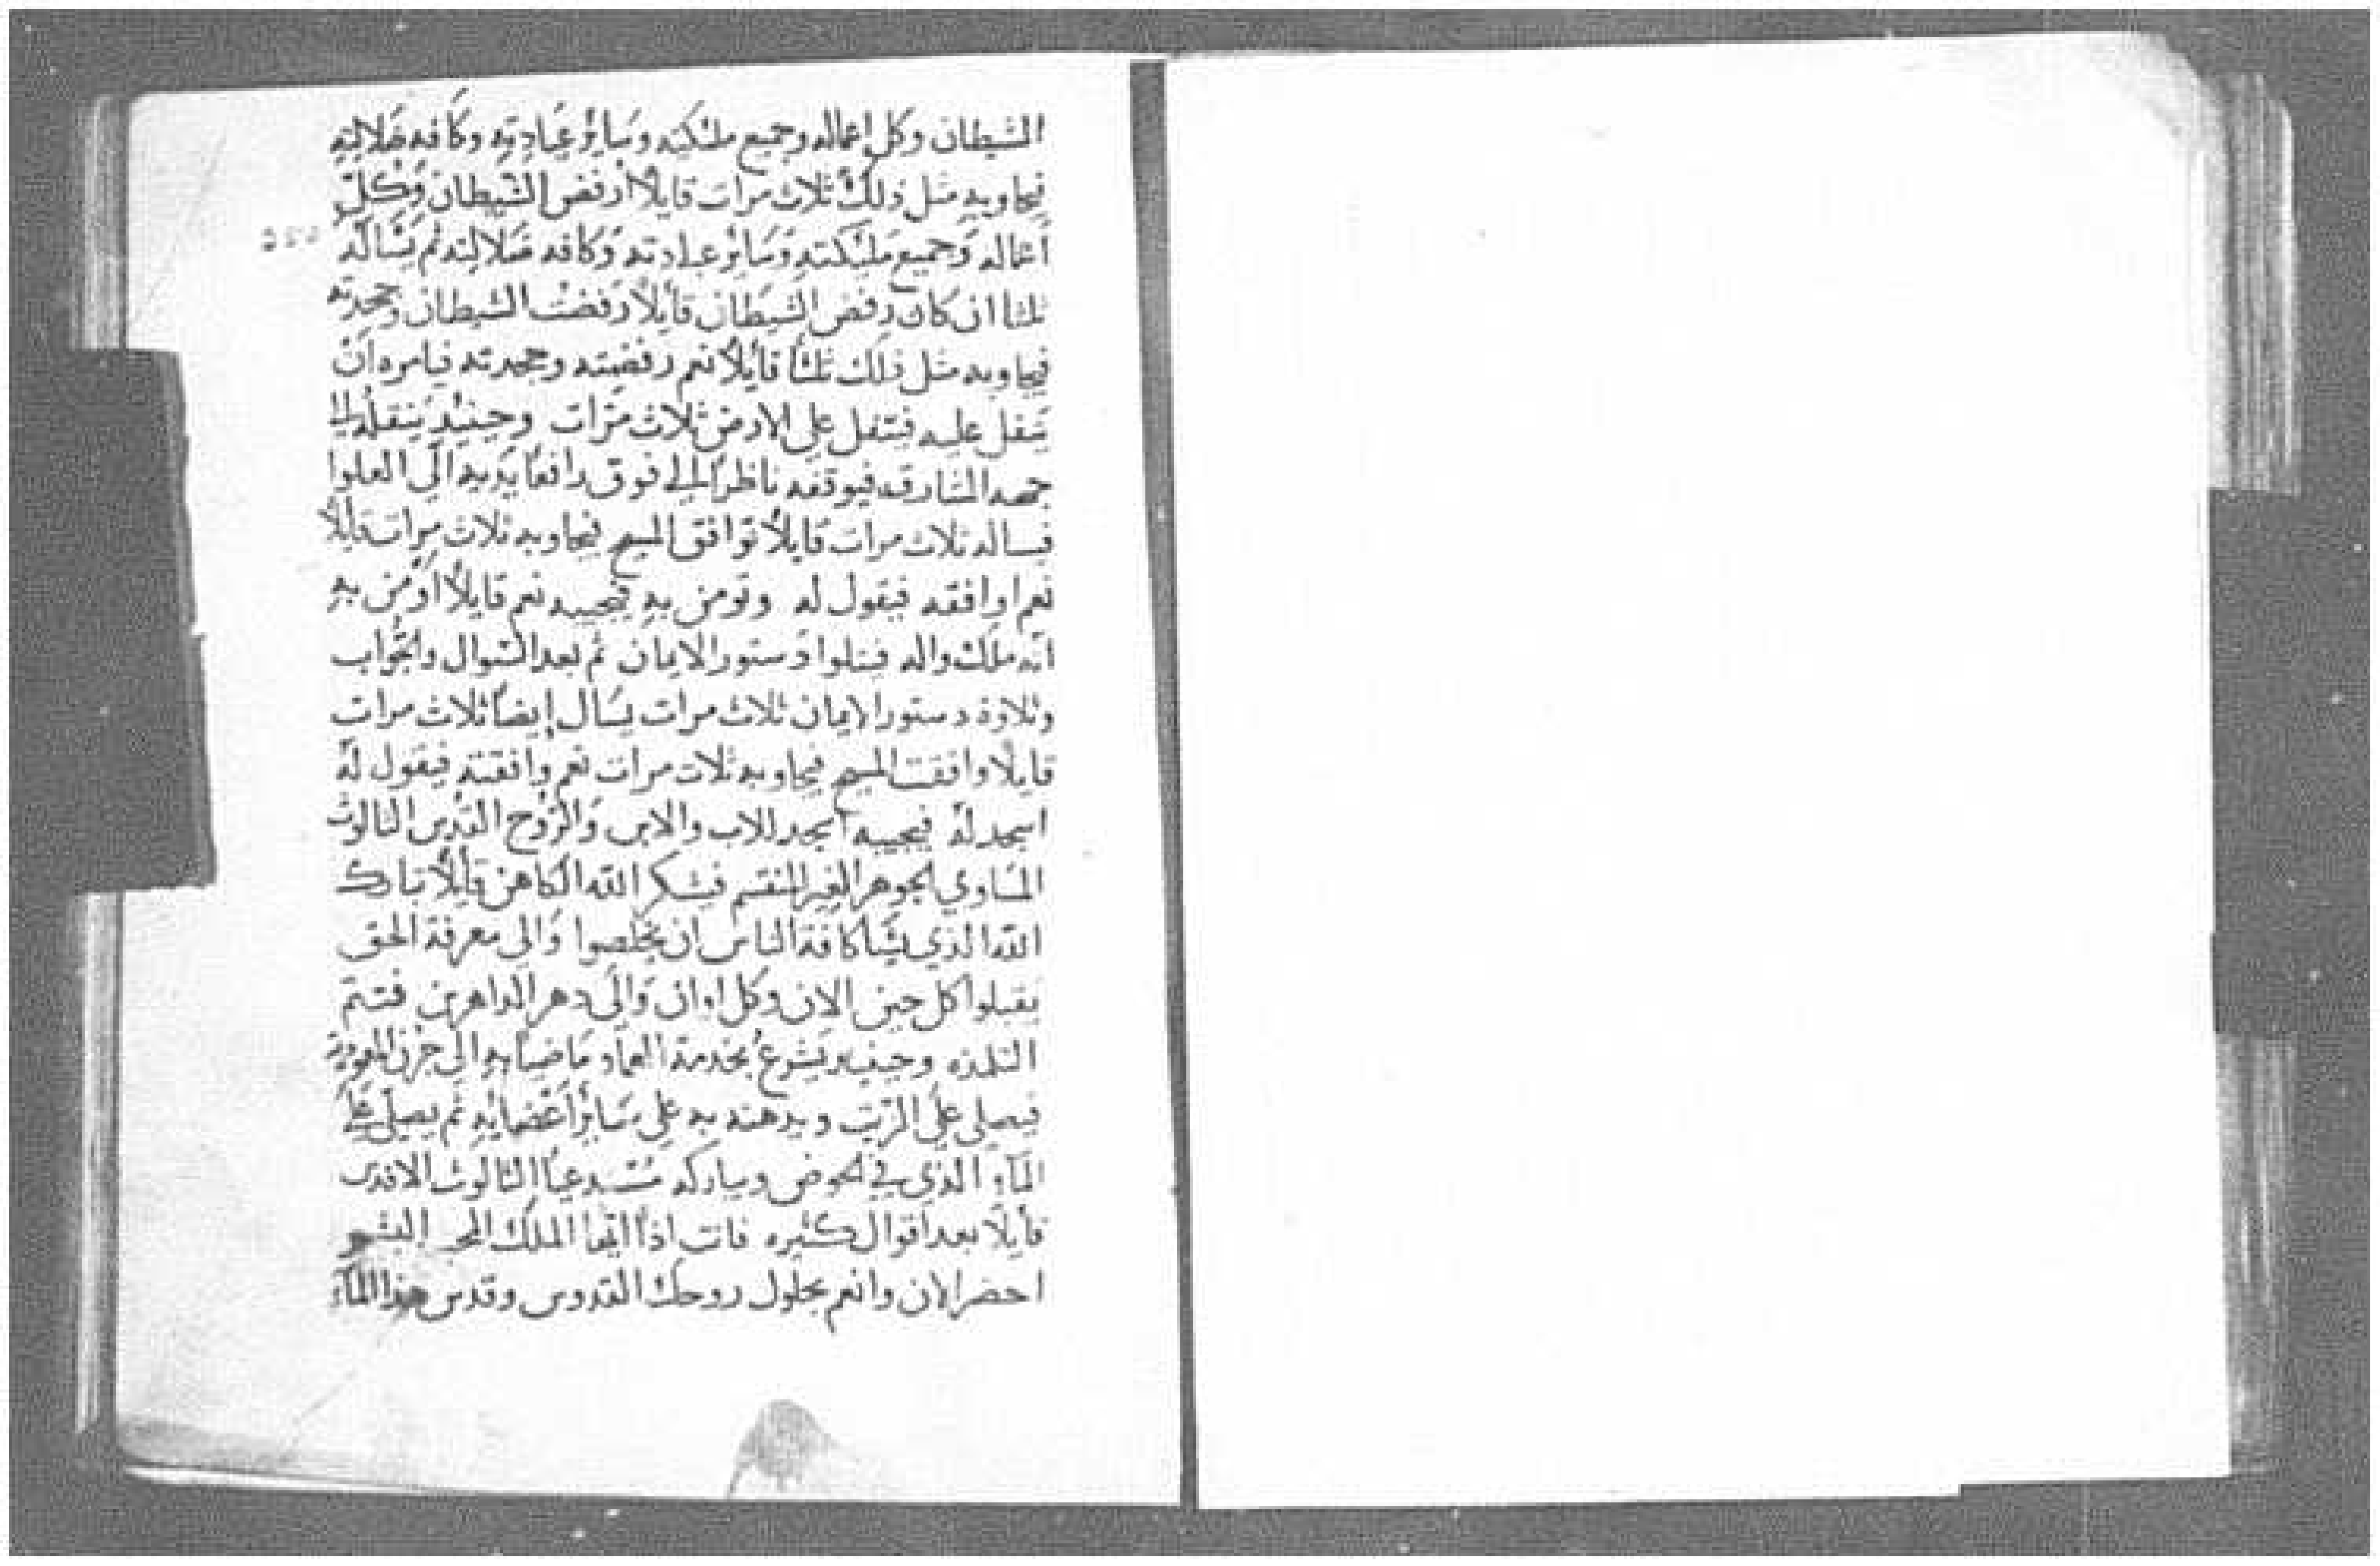 الشيطان وكل اعماله وجميع ملئكته وسائر عبادته وكافه ضلالته
فيجاوبه مثل ذلك ثلاث مرات قايلًا ارفض الشيطان وكل
أعماله وجميع مليكته وسائر عبادته وكافه ضلالته ثم يسأله
ثلثا ان كان رفض الشيطان قايلًا رفضت الشيطان وجحدته
فيجاوبه مثل ذلك ثلثًا قايلًا نعم رفضته وجحدته فيامره ان
يتفل عليه فيتفل على الارض ثلاث مرات وحينيذ ينقله الى
جهه المشارقه فيوقفه ناظرًا الى فوق رافعًا يديه الى العلوا
فيساله ثلاث مرات قايلًا توافق المسيح فيجاوبه ثلاث مرات قايلًا
نعم اوافقه فيقول له وتومن به فيجيبه نعم قايلًا اومن به
انه ملك واله فيتلوا دستور الايمان ثم بعد السوال والجواب
وتلاوة دستور الايمان ثلاث مرات يسال ايضًا ثلاث مرات
قايلًا وافقت المسيح فيجاوبه ثلاث مرات نعم وافقته فيقول له
اسجد له فيجيبه اسجد للاب والابن والروح القدس الثالوث
المساوي الجوهر الغير المنقسم فيشكر الله الكاهن قايلًا تبارك
الله الذي يشا كافة الناس ان يخلصوا والى معرفة الحق
يقبلوا كل حين الان وكل اوان والى دهر الداهرين فتتم
التلمذه وحينيذ يشرع بخدمة العماد ماضيًا به الى جرن المعمودية
فيصلى على الزيت ويدهنه به على سائر أعضايه ثم يصلى على
الماء الذي في الحوض ويباركه مستدعيًا الثالوث الاقدس
قايلًا بعد اقوال كثيره فانت اذًا ايها الملك المحب البشر
احضر الان وانعم بحلول روحك القدوس وقدس هذا الماء